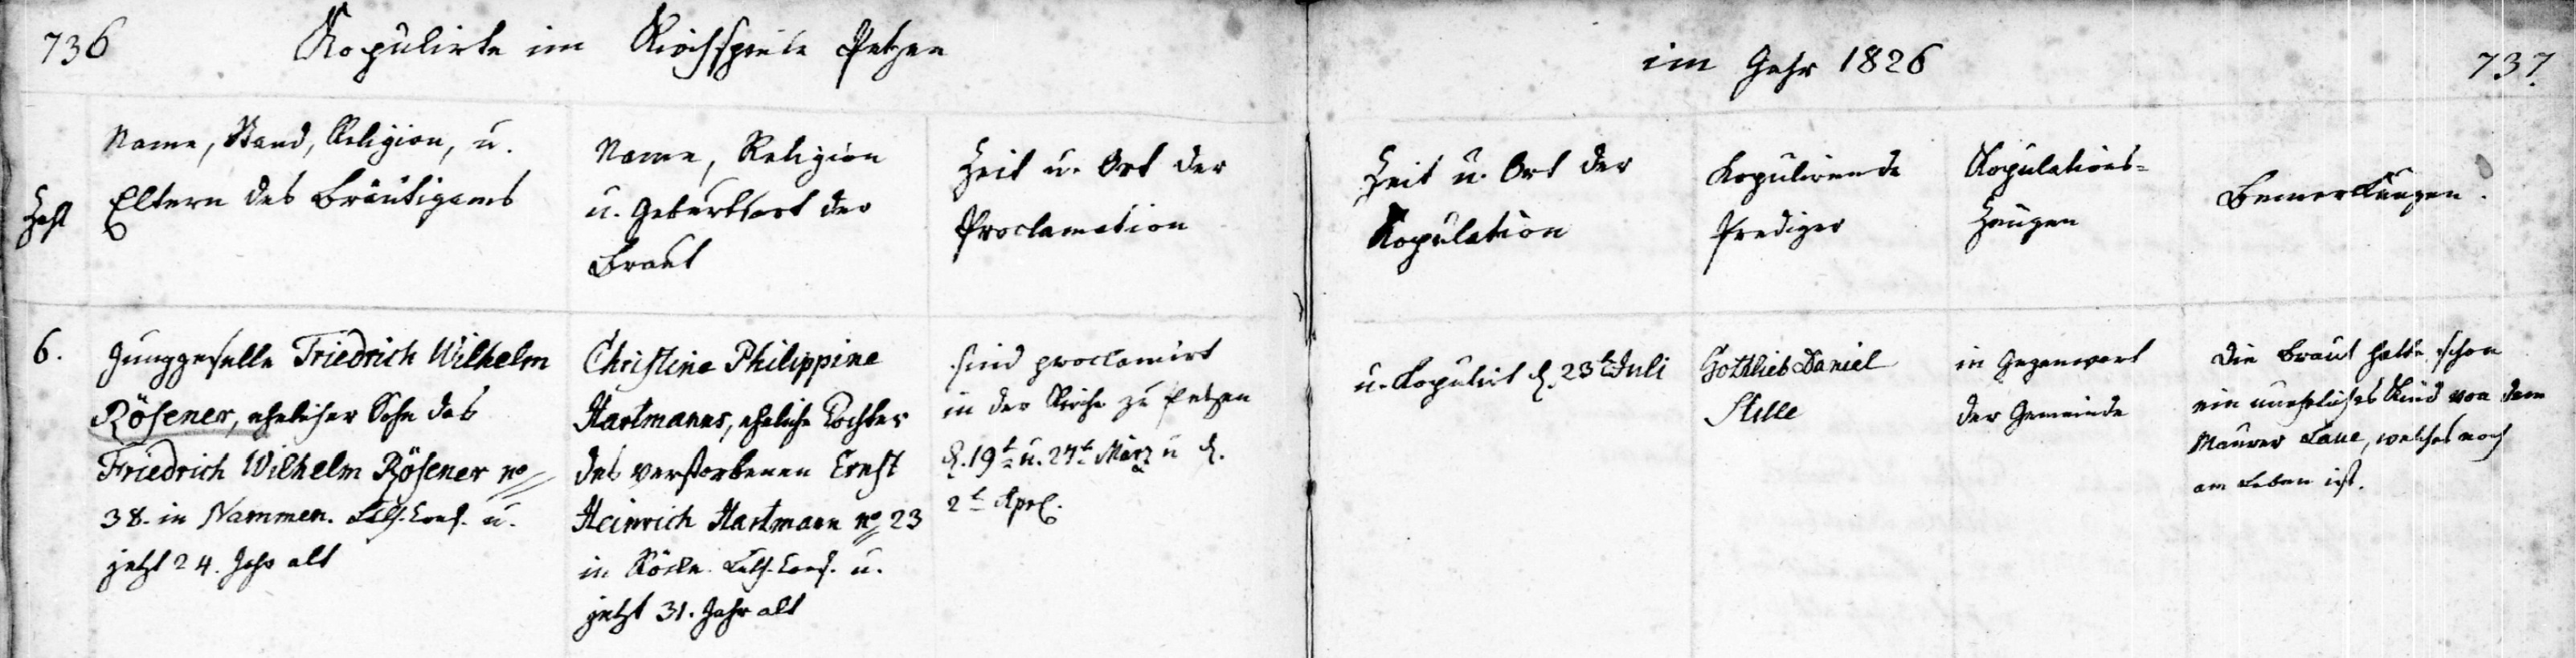 736
Kopulirte im Kirchspiele Petzen
im Jahr 1826
737.
Zahl
Name, Stand, Religion, u.
Eltern des Bräutigams
Name, Religion
u. Geburtsort der
Braut
Zeit u. Ort der
Proclamation
Zeit u. Ort der
Kopulation
Kopulirende
Prediger
Kopulations=
Zeugen
Bemerkungen.
6.
Junggeselle Friedrich Wilhelm
Rösener, ehelicher Sohn des
Friedrich Wilhelm Rösener no
38. in Nammen. Luth. Conf. u.
jetzt 24. Jahr alt
Christine Philippine
Hartmanns, eheliche Tochter
des verstorbenen Ernst
Heinrich Hartmann no 23
in Röcke. Luth. Conf. u.
jetzt 31. Jahr alt
sind proclamirt
in der Kirche zu Petzen
d. 19t u. 27t März u d.
2t Aprl.
u. kopulirt d. 23t Juli
Gottlieb Daniel
Stille
in Gegenwart
der Gemeinde
Die Braut hatte schon
ein unehliches Kind von dem
Maurer Laue, welches noch
am Leben ist.